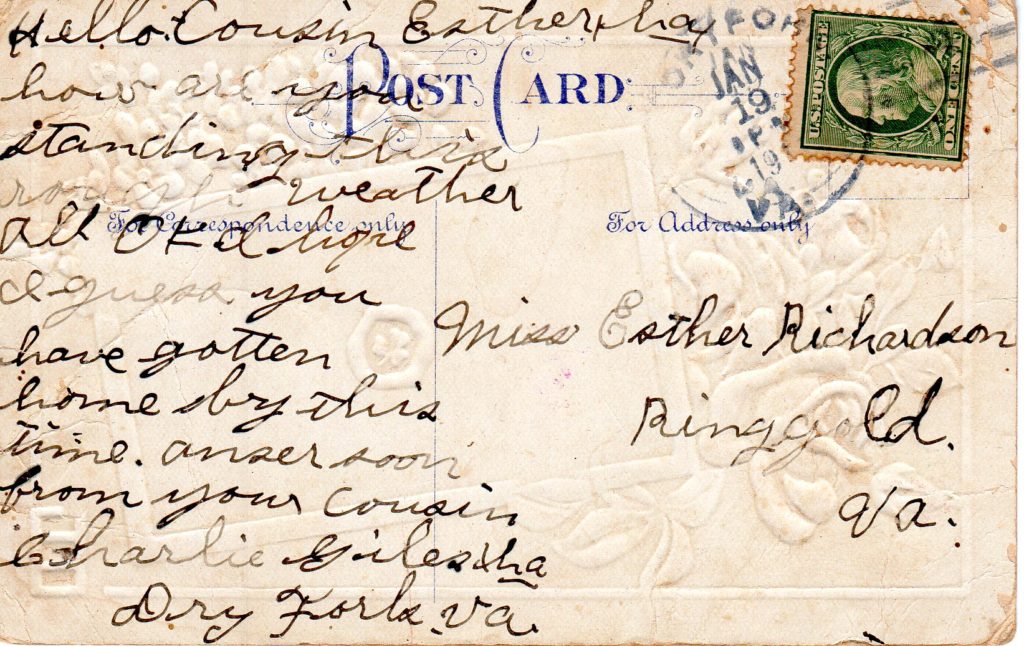 Hello. Cousin Esther, ha
how are you
standing this
rough weather
All OK I hope
I guess you
have gotten
home by this
time. anser soon
from your cousin
Charlie Giles, ha
Dry Fork Va.
POST CARD
For Correspondence only
For Address only
Miss Esther Richardson
Ringgold.
Va.
DRY FORK
JAN
19
VA.
U.S. POSTAGE
ONE CENT